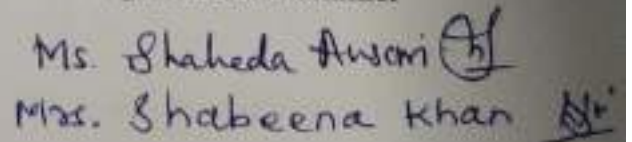 Ms. Shaheda Ansari
Mrs. Shabeena Khan